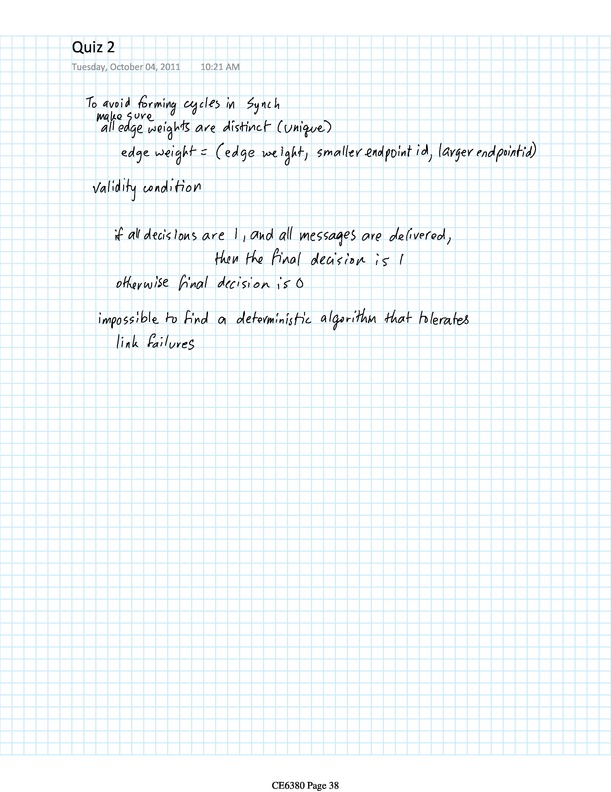 Quiz 2
Tuesday, October 04, 2011 10:21 AM
To avoid forming cycles in Synch
make sure
all edge weights are distinct (unique)
edge weight = (edge weight, smaller endpoint id, larger endpointid)
validity condition
if all decisions are 1, and all messages are delivered,
then the final decision is 1
otherwise final decision is 0
impossible to find a deterministic algorithm that tolerates
link failures
CE6380 Page 38